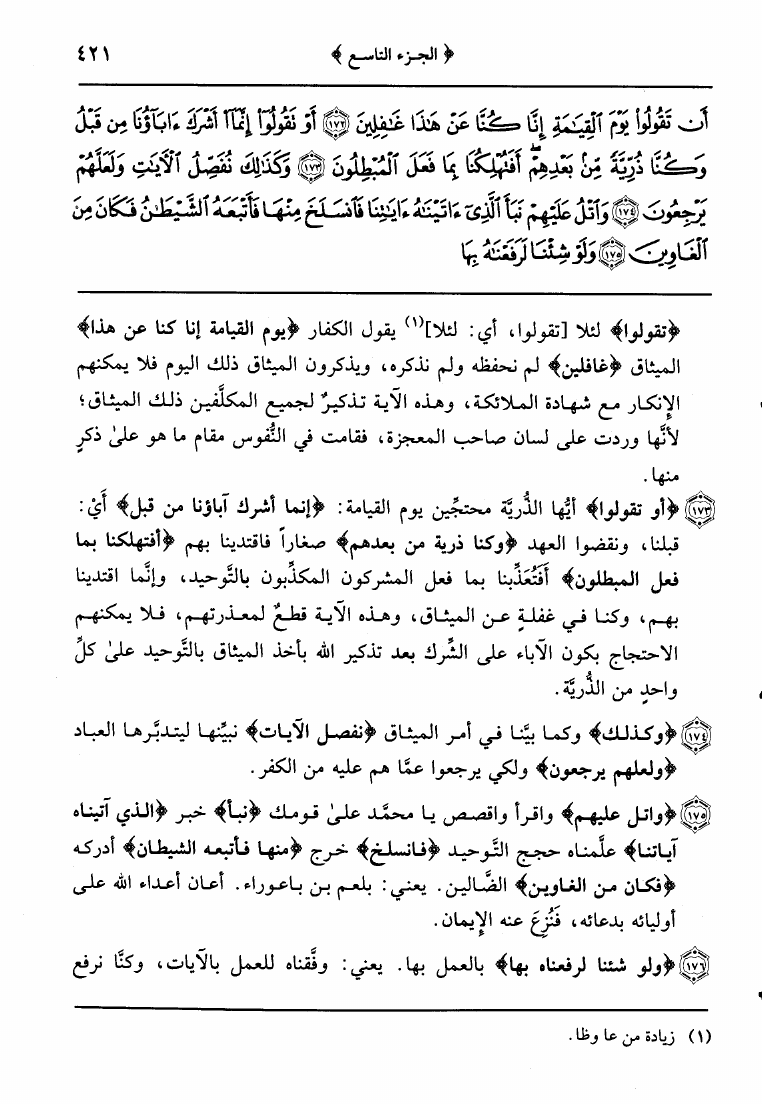 ﴿ الجزء التاسع ﴾ ٤٢١
أَن تَقُولُوا۟ يَوْمَ ٱلْقِيَٰمَةِ إِنَّا كُنَّا عَنْ هَٰذَا غَٰفِلِينَ ١٧٢ أَوْ تَقُولُوٓا۟ إِنَّمَآ أَشْرَكَ ءَابَآؤُنَا مِن قَبْلُ
وَكُنَّا ذُرِّيَّةً مِّنۢ بَعْدِهِمْ ۖ أَفَتُهْلِكُنَا بِمَا فَعَلَ ٱلْمُبْطِلُونَ ١٧٣ وَكَذَٰلِكَ نُفَصِّلُ ٱلْءَايَٰتِ وَلَعَلَّهُمْ
يَرْجِعُونَ ١٧٤ وَٱتْلُ عَلَيْهِمْ نَبَأَ ٱلَّذِىٓ ءَاتَيْنَٰهُ ءَايَٰتِنَا فَٱنسَلَخَ مِنْهَا فَأَتْبَعَهُ ٱلشَّيْطَٰنُ فَكَانَ مِنَ
ٱلْغَاوِينَ ١٧٥ وَلَوْ شِئْنَا لَرَفَعْنَٰهُ بِهَا
﴿تقولوا﴾ لئلا [تقولوا، أي: لئلا](١) يقول الكفار ﴿يوم القيامة إنا كنا عن هذا﴾
الميثاق ﴿غافلين﴾ لم نحفظه ولم نذكره، ويذكرون الميثاق ذلك اليوم فلا يمكنهم
الإنكار مع شهادة الملائكة، وهذه الآية تذكيرٌ لجميع المكلَّفين ذلك الميثاق؛
لأنَّها وردت على لسان صاحب المعجزة، فقامت في النُّفوس مقام ما هو علىٰ ذكرٍ
منها.
١٧٣ ﴿أو تقولوا﴾ أيُّها الذُّريَّة محتجِّين يوم القيامة: ﴿إنما أشرك آباؤنا من قبل﴾ أَيْ:
قبلنا، ونقضوا العهد ﴿وكنا ذرية من بعدهم﴾ صغاراً فاقتدينا بهم ﴿أفتهلكنا بما
فعل المبطلون﴾ أَفَتُعَذِّبنا بما فعل المشركون المكذِّبون بالتَّوحيد، وإنَّما اقتدينا
بهم، وكنا في غفلةٍ عن الميثاق، وهذه الآية قطعٌ لمعذرتهم، فلا يمكنهم
الاحتجاج بكون الآباء على الشِّرك بعد تذكير الله بأخذ الميثاق بالتَّوحيد علىٰ كلِّ
واحدٍ من الذُّريَّة.
١٧٤ ﴿وكذلك﴾ وكما بيَّنا في أمر الميثاق ﴿نفصل الآيات﴾ نبيِّنها ليتدبَّرها العباد
﴿ولعلهم يرجعون﴾ ولكي يرجعوا عمَّا هم عليه من الكفر.
١٧٥ ﴿واتل عليهم﴾ واقرأ واقصص يا محمَّد علىٰ قومك ﴿نبأ﴾ خبر ﴿الذي آتيناه
آياتنا﴾ علَّمناه حجج التَّوحيد ﴿فانسلخ﴾ خرج ﴿منها فأتبعه الشيطان﴾ أدركه
﴿فكان من الغاوين﴾ الضَّالين. يعني: بلعم بن باعوراء. أعان أعداء الله على
أوليائه بدعائه، فَنُزِعَ عنه الإيمان.
١٧٦ ﴿ولو شئنا لرفعناه بها﴾ بالعمل بها. يعني: وفَّقناه للعمل بالآيات، وكنَّا نرفع
(١) زيادة من عا وظا.